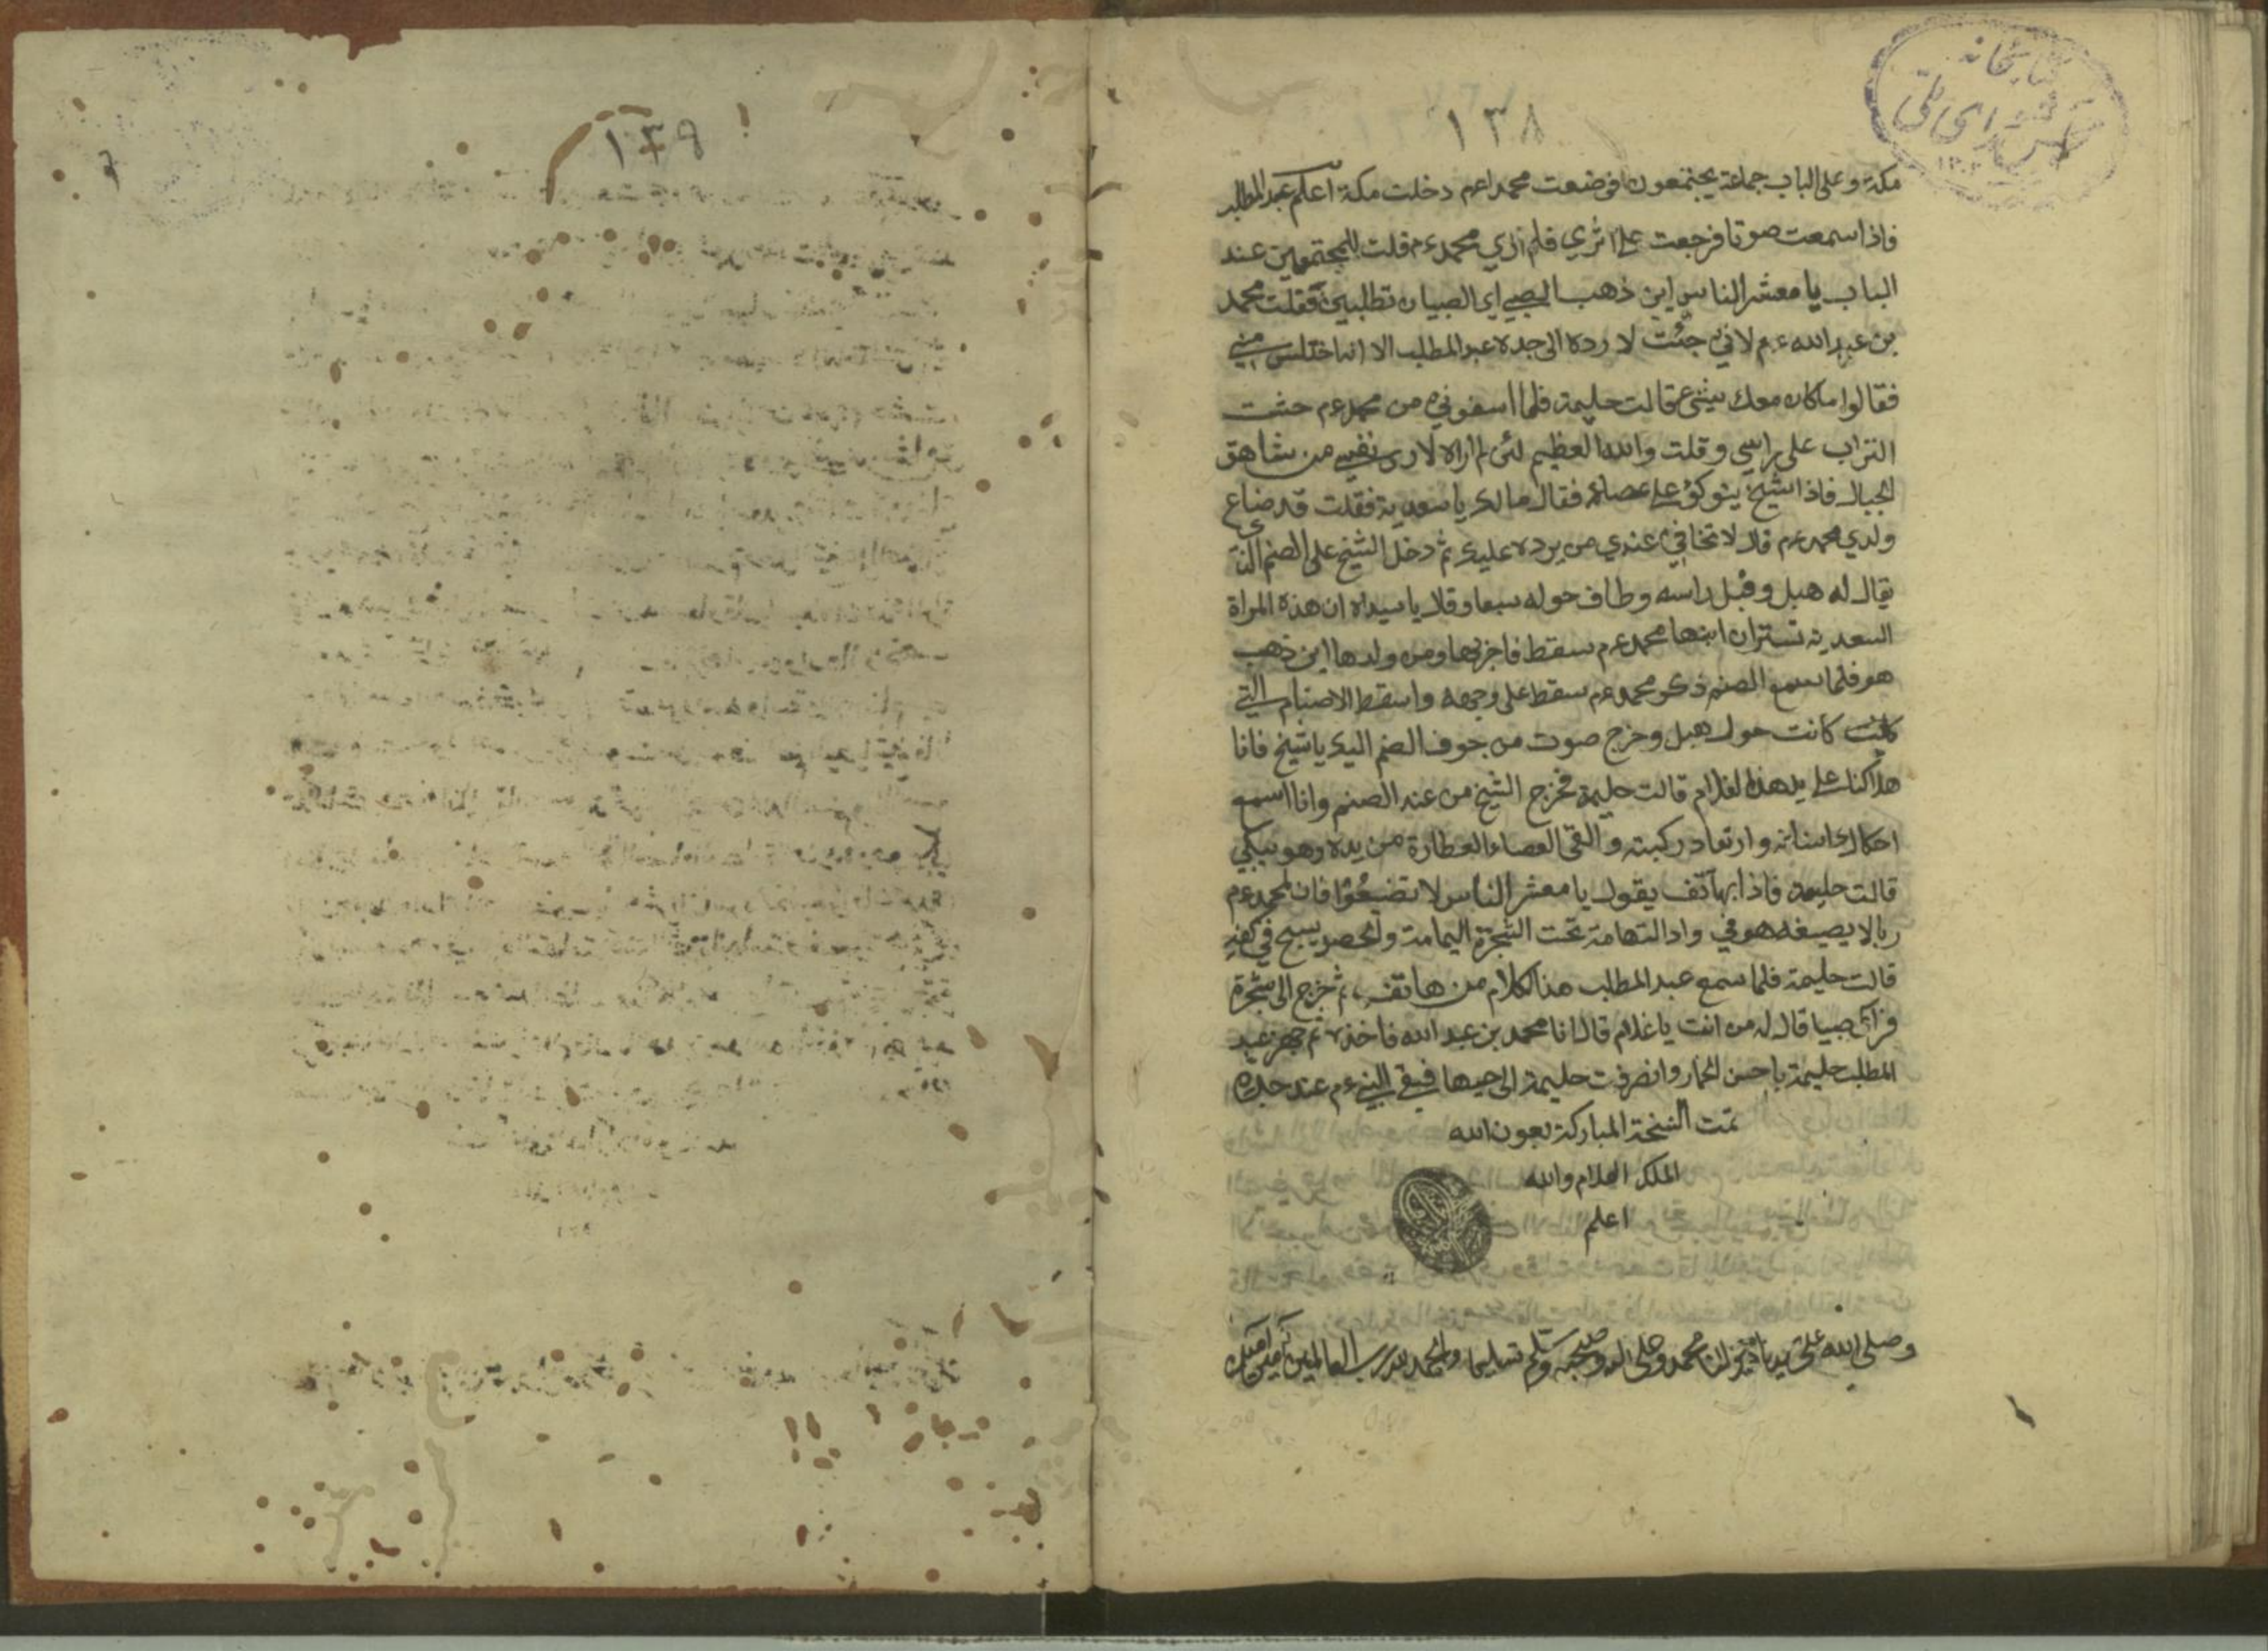 كتابخانه
مجلس شورای ملی
١٣٨
مكة وعلى الباب جماعة يجتمعون فوضعت محمدا عم دخلت مكة اعلم عبد المطلب
فاذا سمعت صوتا فرجعت على اثري فلم ازي محمد عم فلت للمجتمعين عند
الباب يا معشر الناس اين ذهب الصبي اي الصبيان تطلبين فقلت محمد
بن عبد الله عم لاني جئت لارده الى جده عبد المطلب الا انه اختلس مني
فقالوا ماكان معك شئ قالت حليمة فلما اسفوني من محمد عم حثت
التراب على راسي وقلت والله العظيم لئن لم اراه لارى نفسي من شاهق
الجبال فاذا شيخ يتوكؤ على عصائه فقال مالك يا سعدية فقلت قد ضاع
ولدي محمد عم قال لا تخافي عندي من يرده عليك ثم دخل الشيخ على الصنم الذي
يقال له هبل وقبل راسه وطاف حوله سبعا وقال يا سيداه ان هذه المراة
السعدية ان ابنها محمد عم سقط فاخربها ومن ولدها اين ذهب
هو فلما سمع الصنم ذكر محمد عم سقط على وجهه واسقط الاصنام التي
كانت كانت حول هبل وخرج صوت من جوف الصنم اليك يا شيخ فانا
هلاكنا على يد هذا لغلام قالت حليمة فخرج الشيخ من عند الصنم وانا اسمع
احكاك اسنانه وارتعاد ركبته والقى العصاء العطارة من يده وهو يبكي
قالت حليمة فاذا بهاتف يقول يا معشر الناس لا تضيعوا فان لمحمد عم
ربا لا يصيغه هو في واد التهامة تحت الشجرة اليمامة والحصر يسبح في كفه
قالت حليمة فلما سمع عبد المطلب هذا لكلام من هاتف ثم خرج الى شجرة
فراى صبيا قال له من انت يا غلام قال انا محمد بن عبد الله فاخذه ثم جهز عبد
المطلب حليمة باحسن الحمار وانصرفت حليمة الى حيها فبقي النبي عم عند جده
تمت النسخة المباركة بعون الله
الملك العلام والله
اعلم
وصلى الله على سيدنا محمد وعلى اله وصحبه وسلم تسليما والحمد لله رب العالمين امين
١٣٩